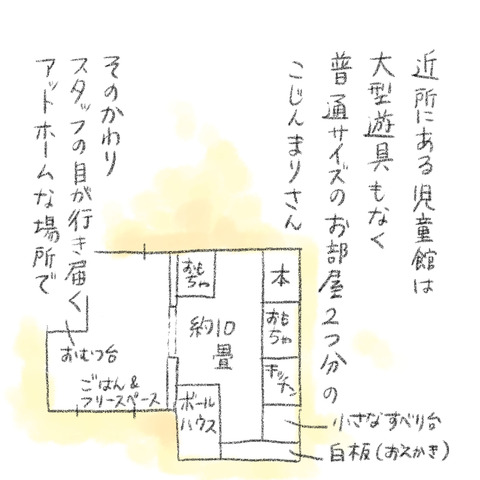 近所にある児童館は
大型遊具もなく
普通サイズのお部屋2つ分の
こじんまりさん
そのかわり
スタッフの目が行き届く
アットホームな場所で
おもちゃ
本
約10畳
おもちゃ
キッチン
おむつ台
ごはん&
フリースペース
ボール
ハウス
小さなすべり台
白板(おえかき)